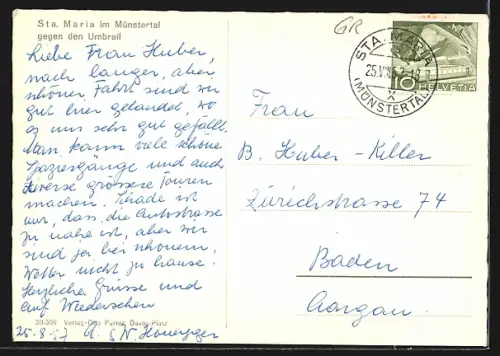 Sta. Maria im Münstertal
gegen den Umbrail
Liebe Frau Huber,
nach langer, aber
schöner Fahrt sind wir
gut hier gelandet, wo
es uns sehr gut gefällt.
Man kann viele schöne
Spaziergänge und auch
diverse grössere Touren
machen. Schade ist
nur, dass die Autostrasse
so nahe ist, aber wir
sind ja bei schönem
Wetter nicht zu hause.
Herzliche Grüsse und
auf Wiedersehen
25.8.57
Verlag Furter, Davos-Platz
GR
STA. MARIA
(MÜNSTERTAL)
10 HELVETIA
Frau
B. Huber-Killer
Zürichstrasse 74
Baden
Aargau.